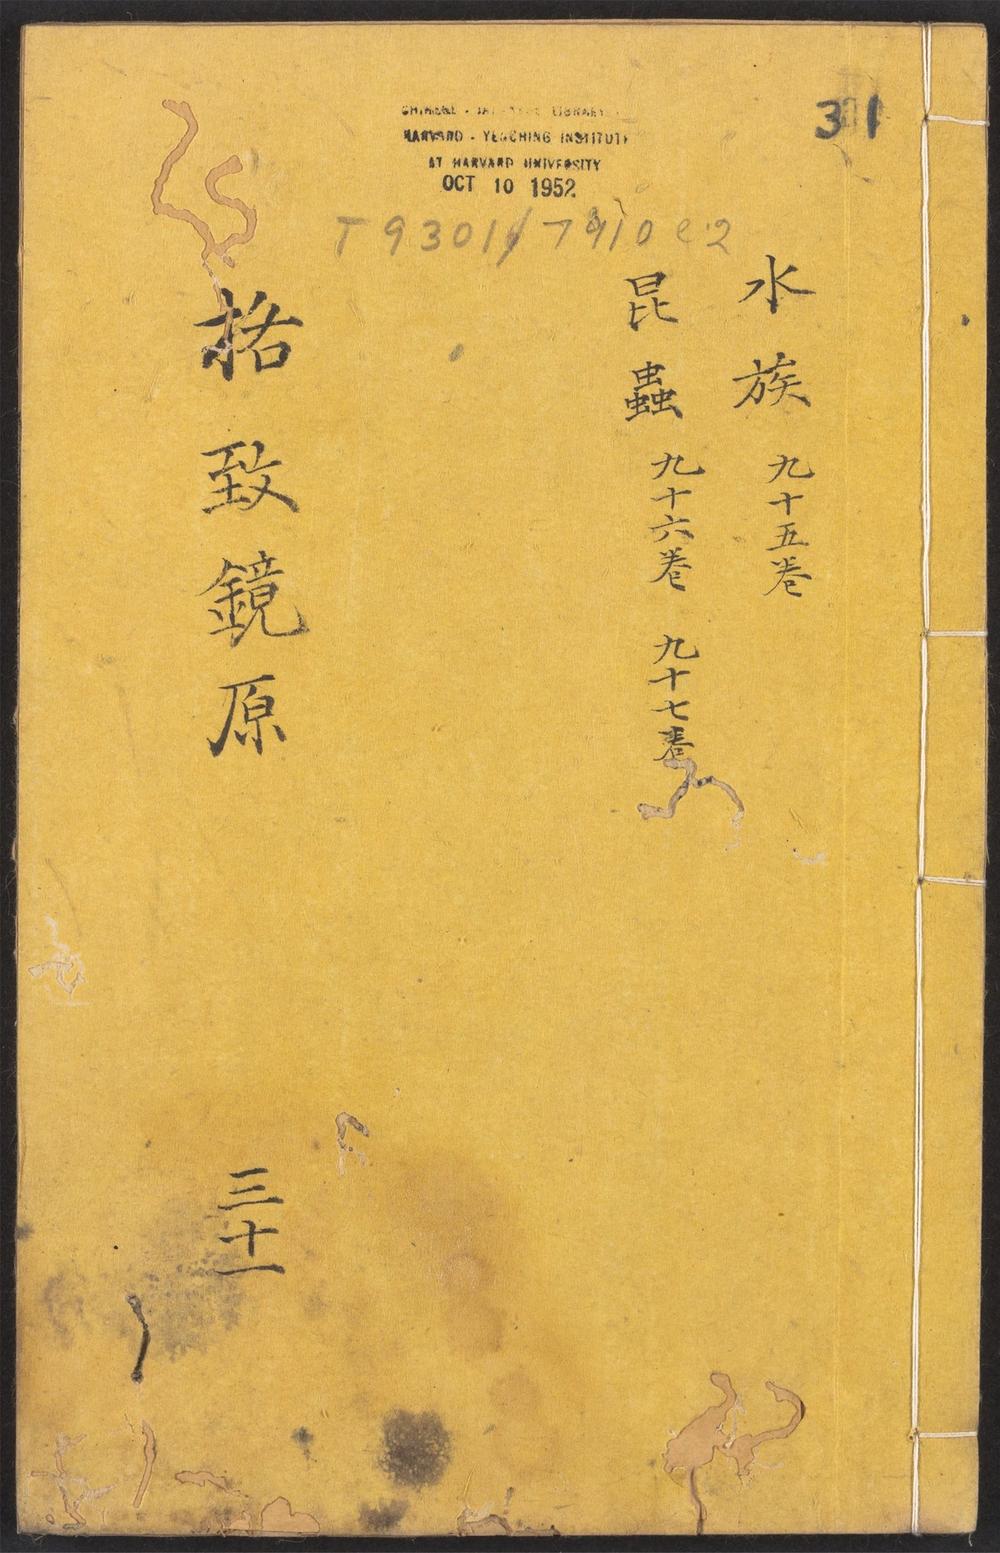 31
CHINESE - JAPANESE LIBRARY
HARVARD - YENCHING INSTITUTE
AT HARVARD UNIVERSITY
OCT 10 1952
T 9301/7910 c2
水族 九十五卷
昆蟲 九十六卷 九十七卷
格致鏡原
三十一